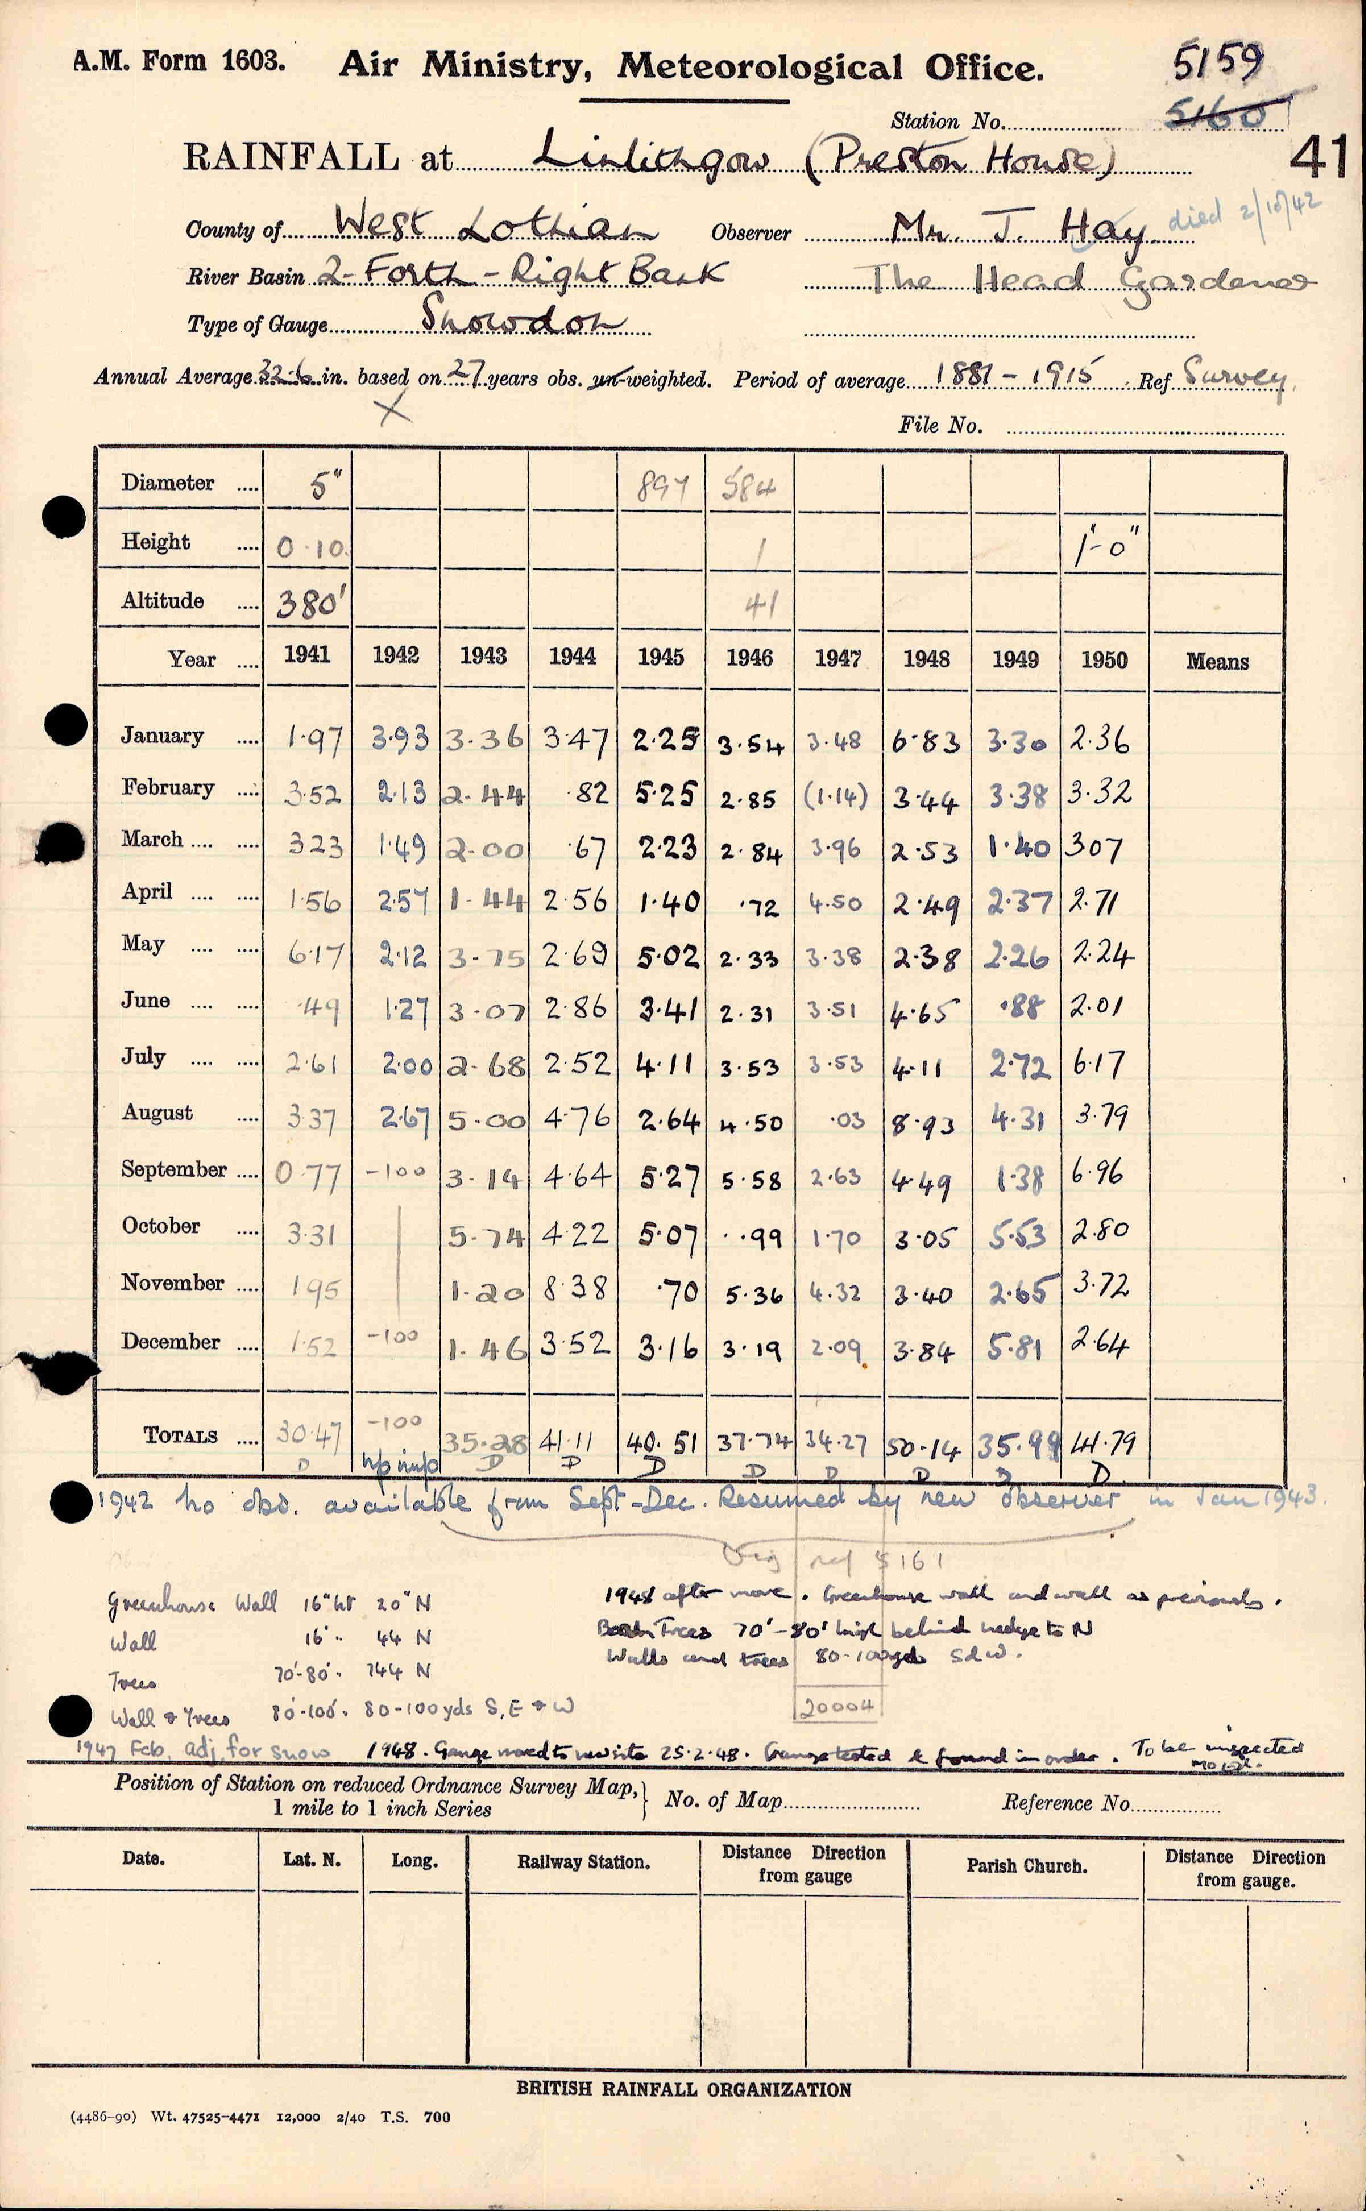 A.M. Form 1603. Air Ministry, Meteorological Office. 5159
Station No. 5160
41
RAINFALL at Linlithgow (Preston House)
County of West Lothian Observer Mr. J. Hay died 2/10/42
River Basin 2-Forth-Right Bank The Head Gardener
Type of Gauge Snowdon
Annual Average 32.6 in. based on 27 years obs. un-weighted. Period of average 1881-1915. Ref Survey.
X
File No.
Diameter .... 5" 897 584
Height .... 0.10. 1 1'-0"
Altitude .... 380' 41
Year .... 1941 1942 1943 1944 1945 1946 1947 1948 1949 1950 Means
January .... 1.97 3.93 3.36 3.47 2.25 3.54 3.48 6.83 3.30 2.36
February .... 3.52 2.13 2.44 .82 5.25 2.85 (1.14) 3.44 3.38 3.32
March .... .... 3.23 1.49 2.00 .67 2.23 2.84 3.96 2.53 1.40 3.07
April .... .... 1.56 2.57 1.44 2.56 1.40 .72 4.50 2.49 2.37 2.71
May .... .... 6.17 2.12 3.75 2.69 5.02 2.33 3.38 2.38 2.26 2.24
June .... .... .49 1.27 3.07 2.86 3.41 2.31 3.51 4.65 .88 2.01
July .... .... 2.61 2.00 2.68 2.52 4.11 3.53 3.53 4.11 2.72 6.17
August .... 3.37 2.67 5.00 4.76 2.64 4.50 .03 8.93 4.31 3.79
September .... 0.77 -100 3.14 4.64 5.27 5.58 2.63 4.49 1.38 6.96
October .... 3.31 5.74 4.22 5.07 .99 1.70 3.05 5.53 2.80
November .... 1.95 1.20 8.38 .70 5.36 4.32 3.40 2.65 3.72
December .... 1.52 -100 1.46 3.52 3.16 3.19 2.09 3.84 5.81 2.64
TOTALS .... 30.47 -100 35.28 41.11 40.51 37.74 34.27 50.14 35.99 41.79
D D D D D D D D D
1942 no obs. available from Sept-Dec. Resumed by new observer in Jan 1943.
Orig ref 5161
Greenhouse Wall 16" ht 20" N
Wall 16' " 44 N
Trees 70'-80' " 144 N
Wall & Trees 80-100' " 80-100 yds S, E & W
1948 after move. Greenhouse wall and wall as previously.
Trees 70'-80' high behind hedge to N
Walls and trees 80-100 yds S & W.
20004
1947 Feb. adj. for snow 1948. Gauge moved to new site 25.2.48. Gauge tested & found in order. To be inspected
Position of Station on reduced Ordnance Survey Map, 1 mile to 1 inch Series } No. of Map Reference No.
Date. Lat. N. Long. Railway Station. Distance Direction from gauge Parish Church. Distance Direction from gauge.
BRITISH RAINFALL ORGANIZATION
(4486-90) Wt. 47525-4471 12,000 2/40 T.S. 700